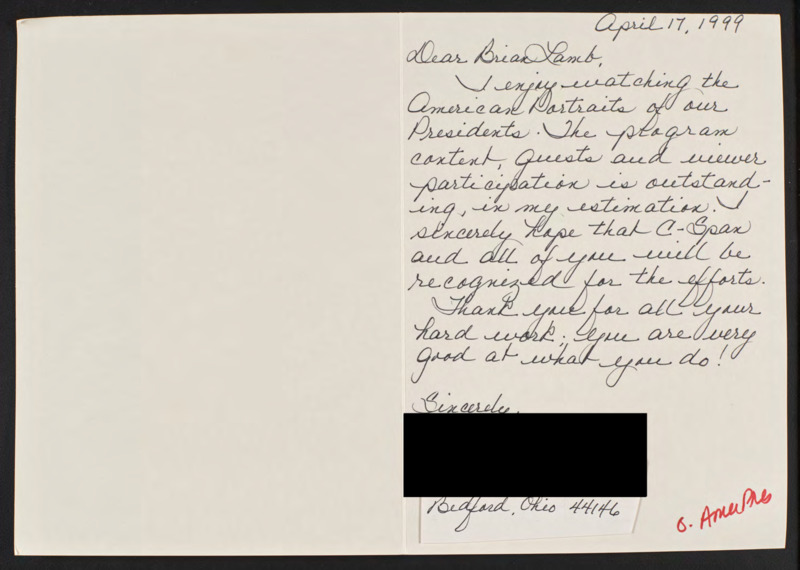 April 17, 1999
Dear Brian Lamb,
I enjoy watching the
American Portraits of our
Presidents. The program
content, guests and viewer
participation is outstand-
ing, in my estimation. I
sincerely hope that C-Span
and all of you will be
recognized for the efforts.
Thank you for all your
hard work; you are very
good at what you do!
Sincerely,
Bedford, Ohio 44146